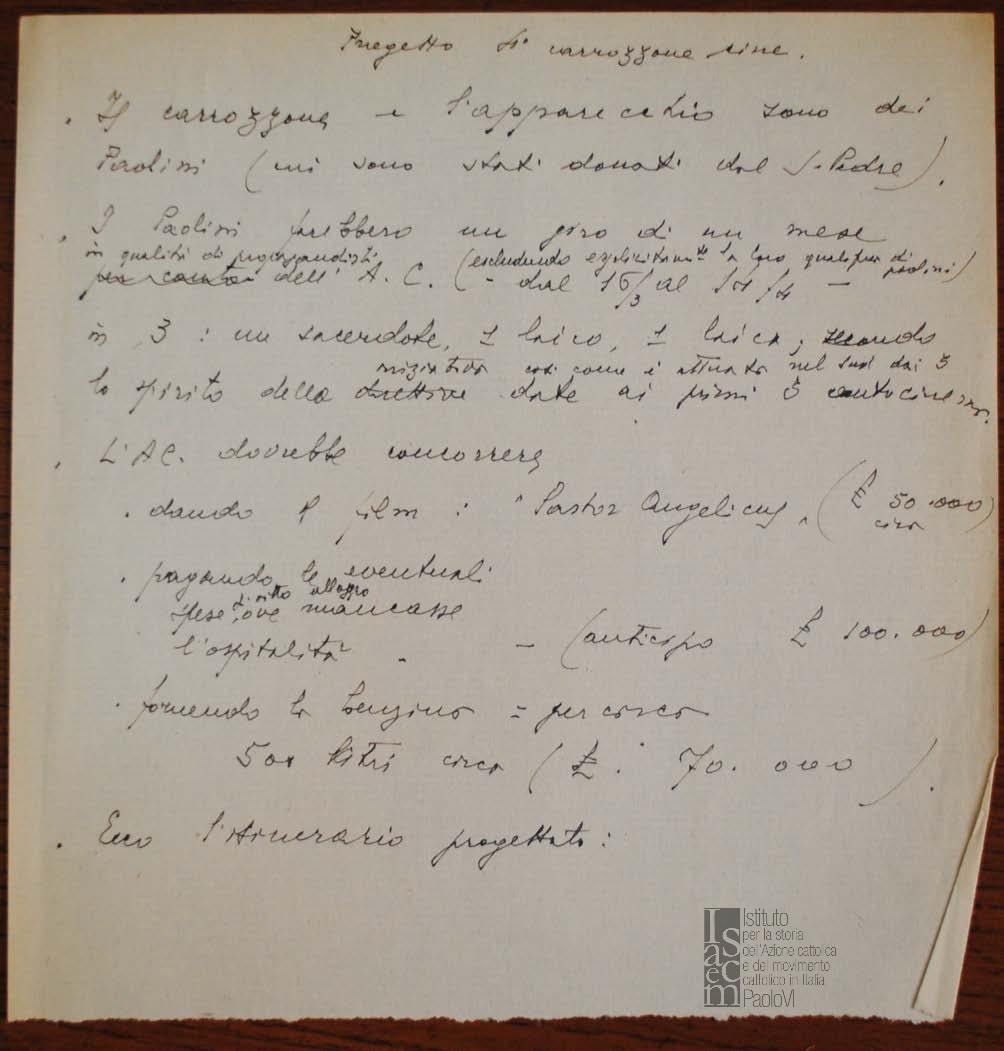 Progetto di carrozzone cine.
. Il carrozzone e l'apparecchio sono dei
Paolini (cui sono stati donati dal S. Padre).
. I Paolini farebbero un giro di un mese
in qualità di propagandisti (escludendo esplicitam.te la loro qualifica di paolini)
per conto dell'A.C. - dal 15/3 al 14/4 -
in 3 : un sacerdote, 1 laico, 1 laica, secondo
iniziativa così come è attuata nel Sud dai 3
lo spirito della direttive date ai primi 3 autocine
. L'AC. dovrebbe concorrere
. dando il film : "Pastor Angelicus" (£ 50.000)
circa
. pagando le eventuali
di vitto alloggio
spese, ove mancasse
l'ospitalità - (anticipo £ 100.000)
. fornendo la benzina = per circa
500 litri circa (£. 70.000).
. Ecco l'itinerario progettato:
Istituto
per la storia
dell'Azione cattolica
e del movimento
cattolico in Italia
PaoloVI
Isacem